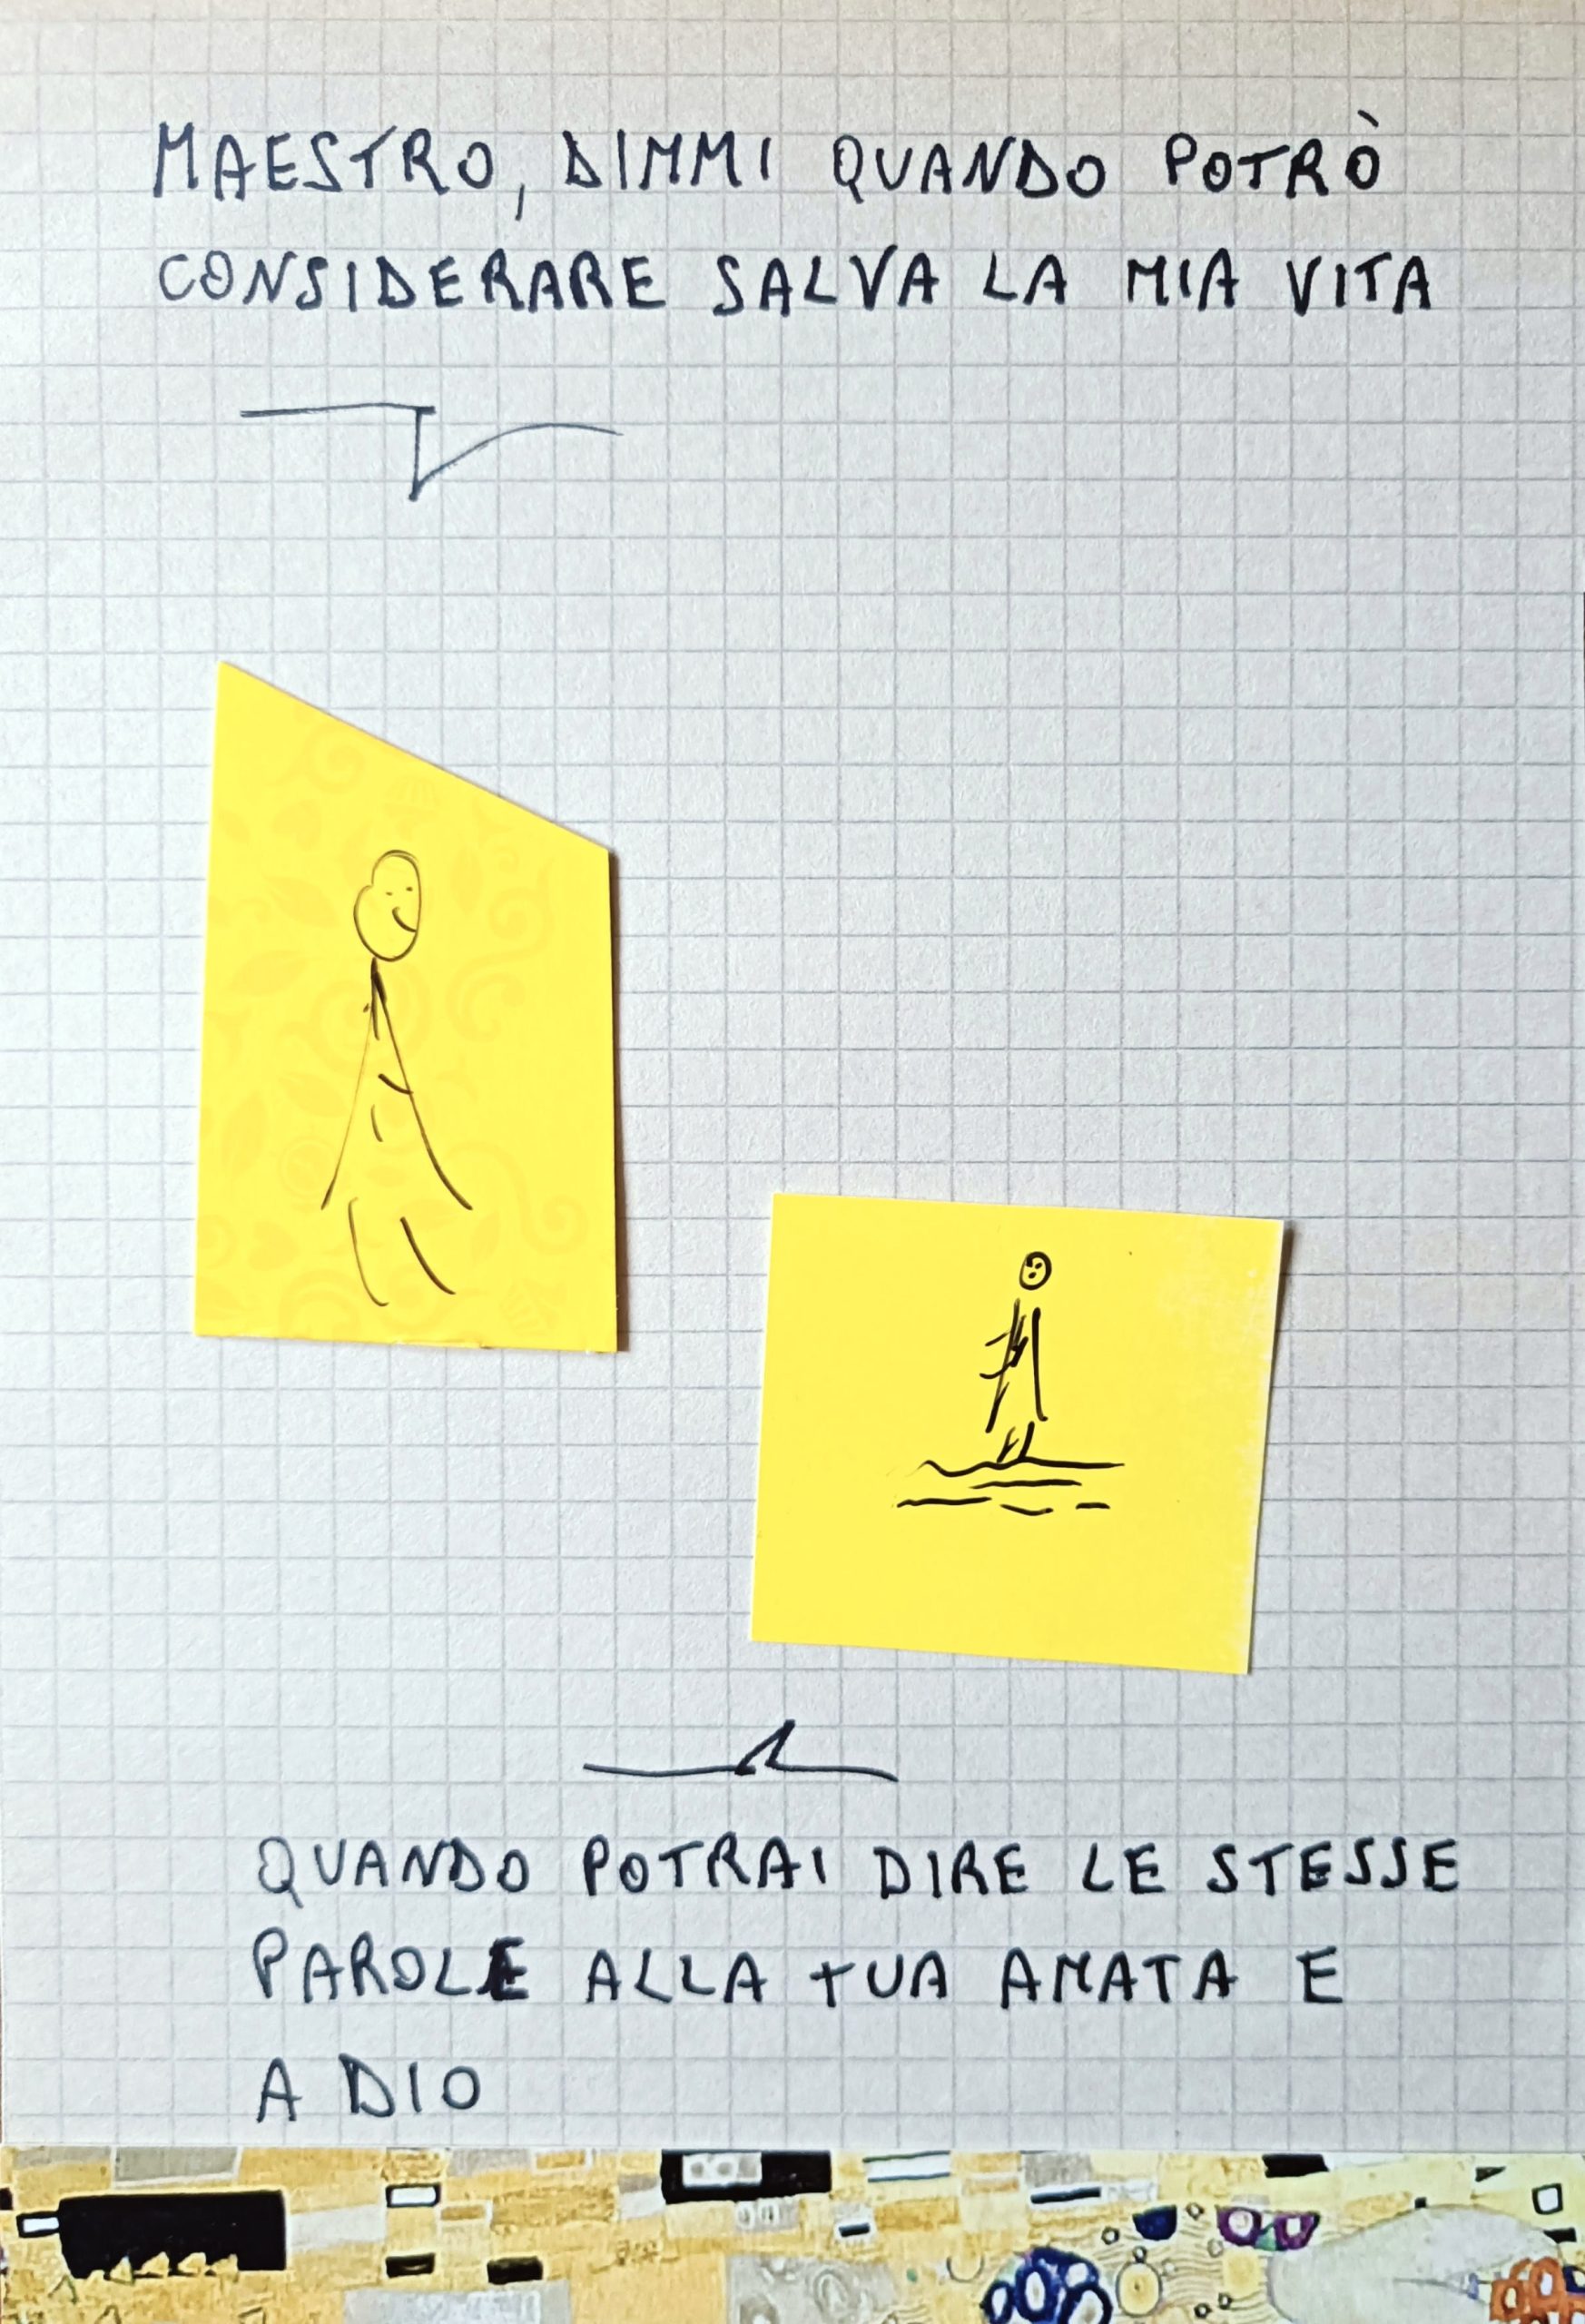 MAESTRO, DIMMI QUANDO POTRÒ
CONSIDERARE SALVA LA MIA VITA
QUANDO POTRAI DIRE LE STESSE
PAROLE ALLA TUA AMATA E
A DIO